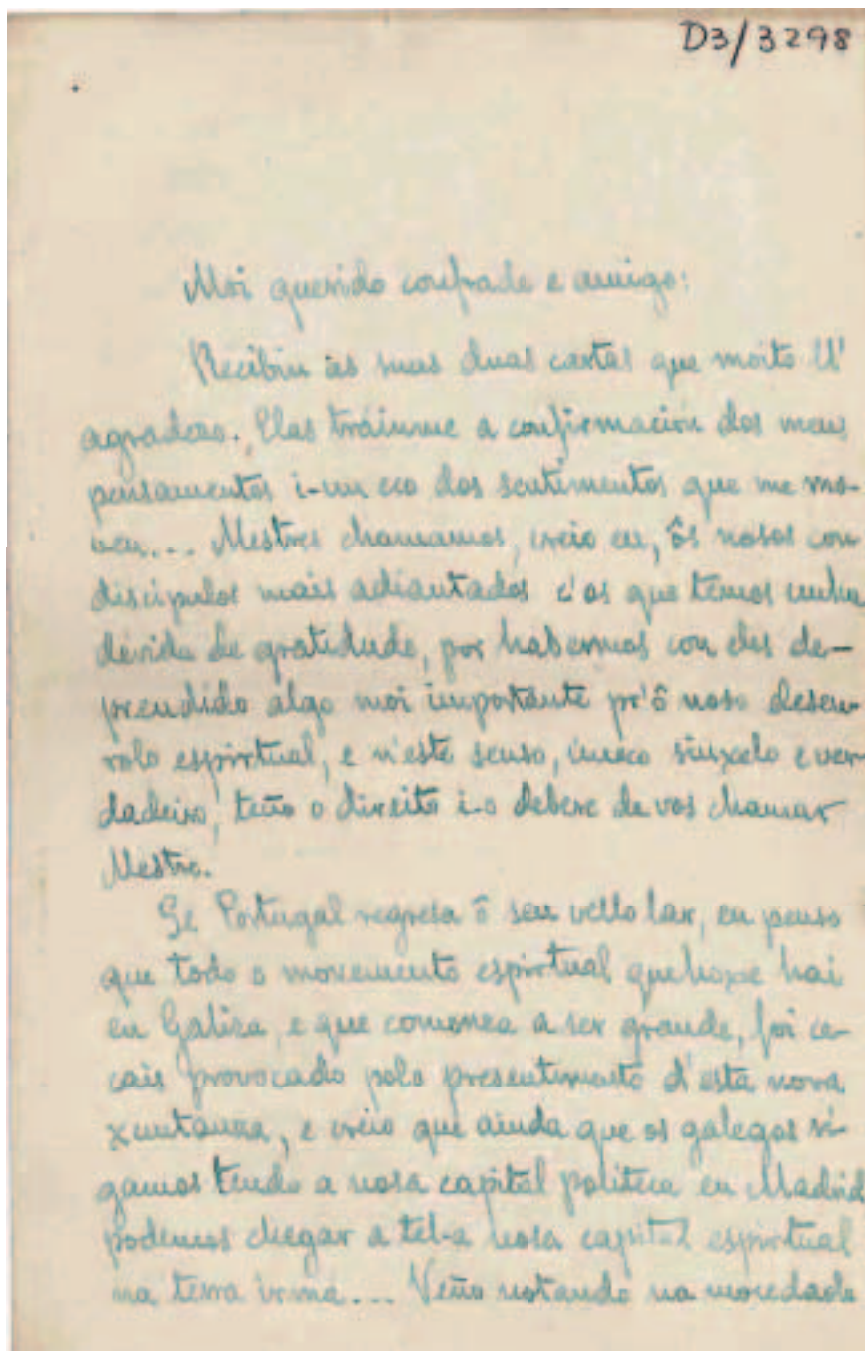 D3/3298
Moi querido confrade e amigo:
Recibin às suas duas cartas que moito ll'
agradezo. Elas tráinme a confirmación dos meus
pensamentos i-un eco dos sentimentos que me mo-
ven... Mestres chamamos, creio eu, ôs nosos con
discípulos mais adiantados c'os que temos unha
dévida de gratidude, por habermos con eles de-
prendido algo moi importante pr'ô noso desen-
rolo espiritual, e n'este senso, único sinxelo e ver
dadeiro, teño o direito i-o debere de vos chamar
Mestre.
Se Portugal regresa ô seu vello lar, eu penso
que todo o movemento espritual que hoxe hai
en Galiza, e que comenza a ser grande, foi ca-
cais provocado polo presentimento d'esta nova
xuntanza, e creio que ainda que os galegos si-
gamos tendo a nosa capital política en Madrid
podemos chegar a tel-a nosa capital espritual
na terra irmá... Veño notando na mocedade